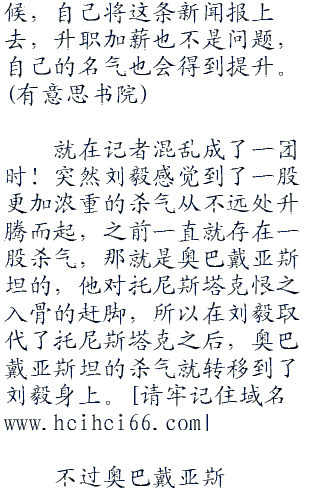 候，自己将这条新闻报上
去，升职加薪也不是问题，
自己的名气也会得到提升。
(有意思书院)
就在记者混乱成了一团
时！突然刘毅感觉到了一股
更加浓重的杀气从不远处升
腾而起，之前一直就存在一
股杀气，那就是奥巴戴亚斯
坦的，他对托尼斯塔克恨之
入骨的赶脚，所以在刘毅取
代了托尼斯塔克之后，奥巴
戴亚斯坦的杀气就转移到了
刘毅身上。[请牢记住域名
www.hcihci66.com|
不过奥巴戴亚斯